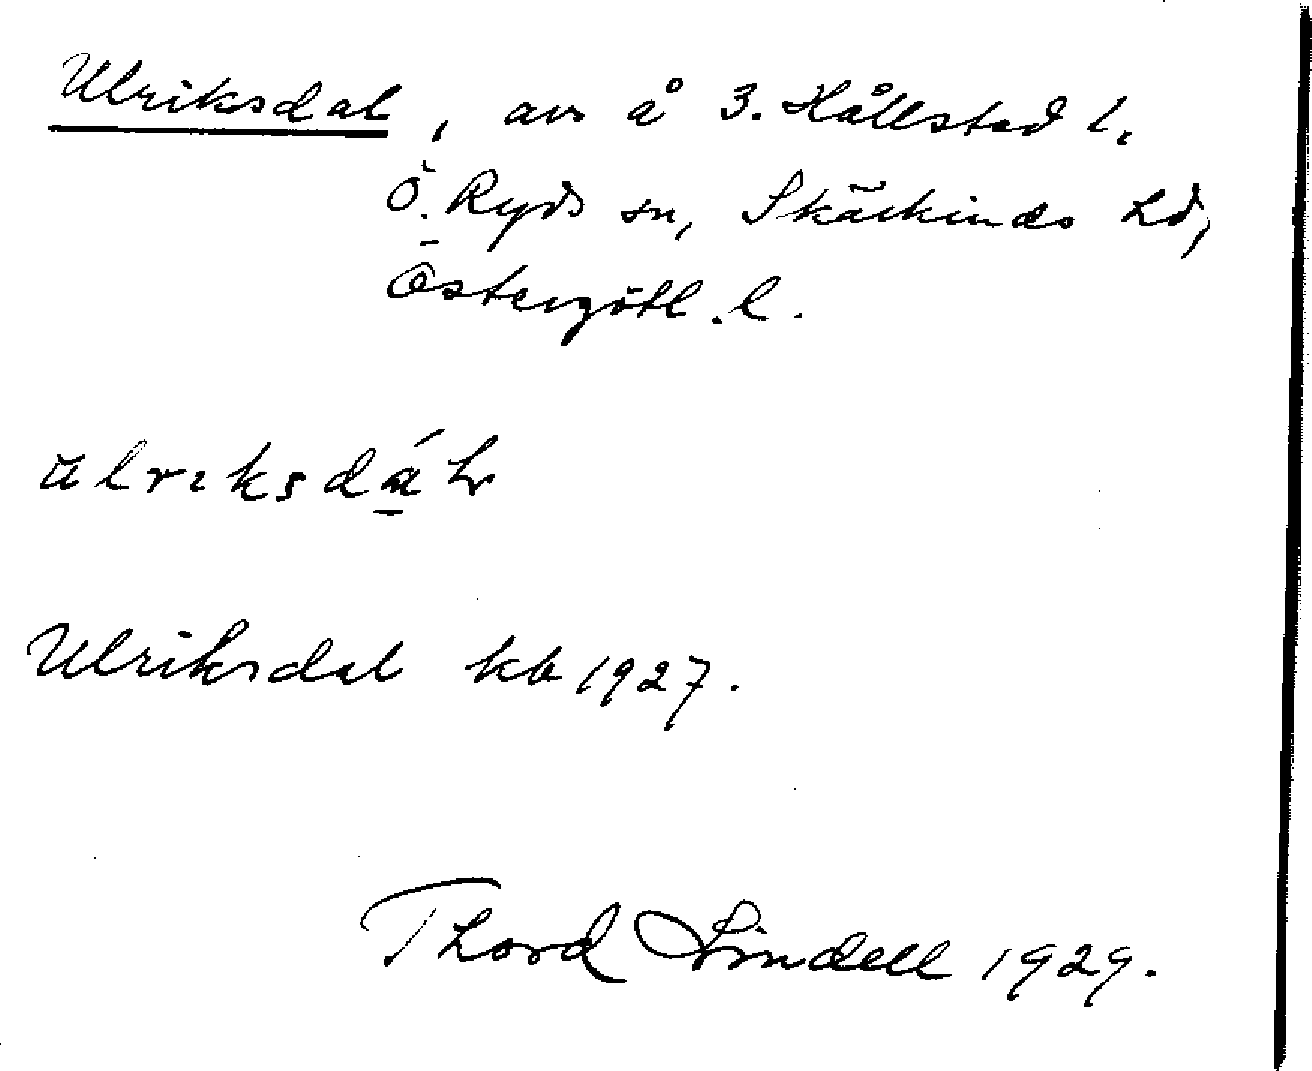 Ulriksdal, avs å 3. Hållstad 1.
Ö. Ryds sn, Skärkinds hd,
Östergötl. l.
ulriksdá
Ulriksdal kb 1927.
Thord Lindell 1929.